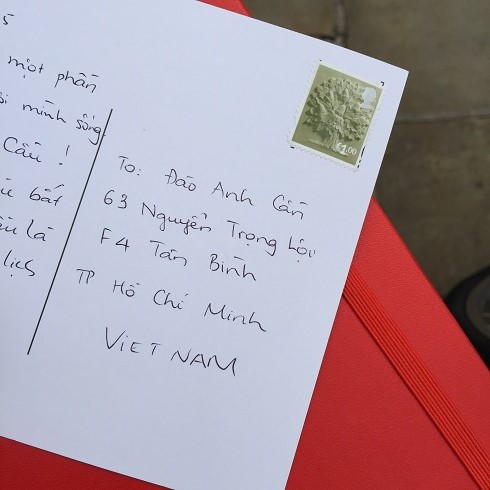 5
một phần
mình sống
Cầu !
bất
là
lịch
£1.00
To: Đào Anh Cần
63 Nguyễn Trọng Lội
F4 Tân Bình
TP Hồ Chí Minh
VIET NAM